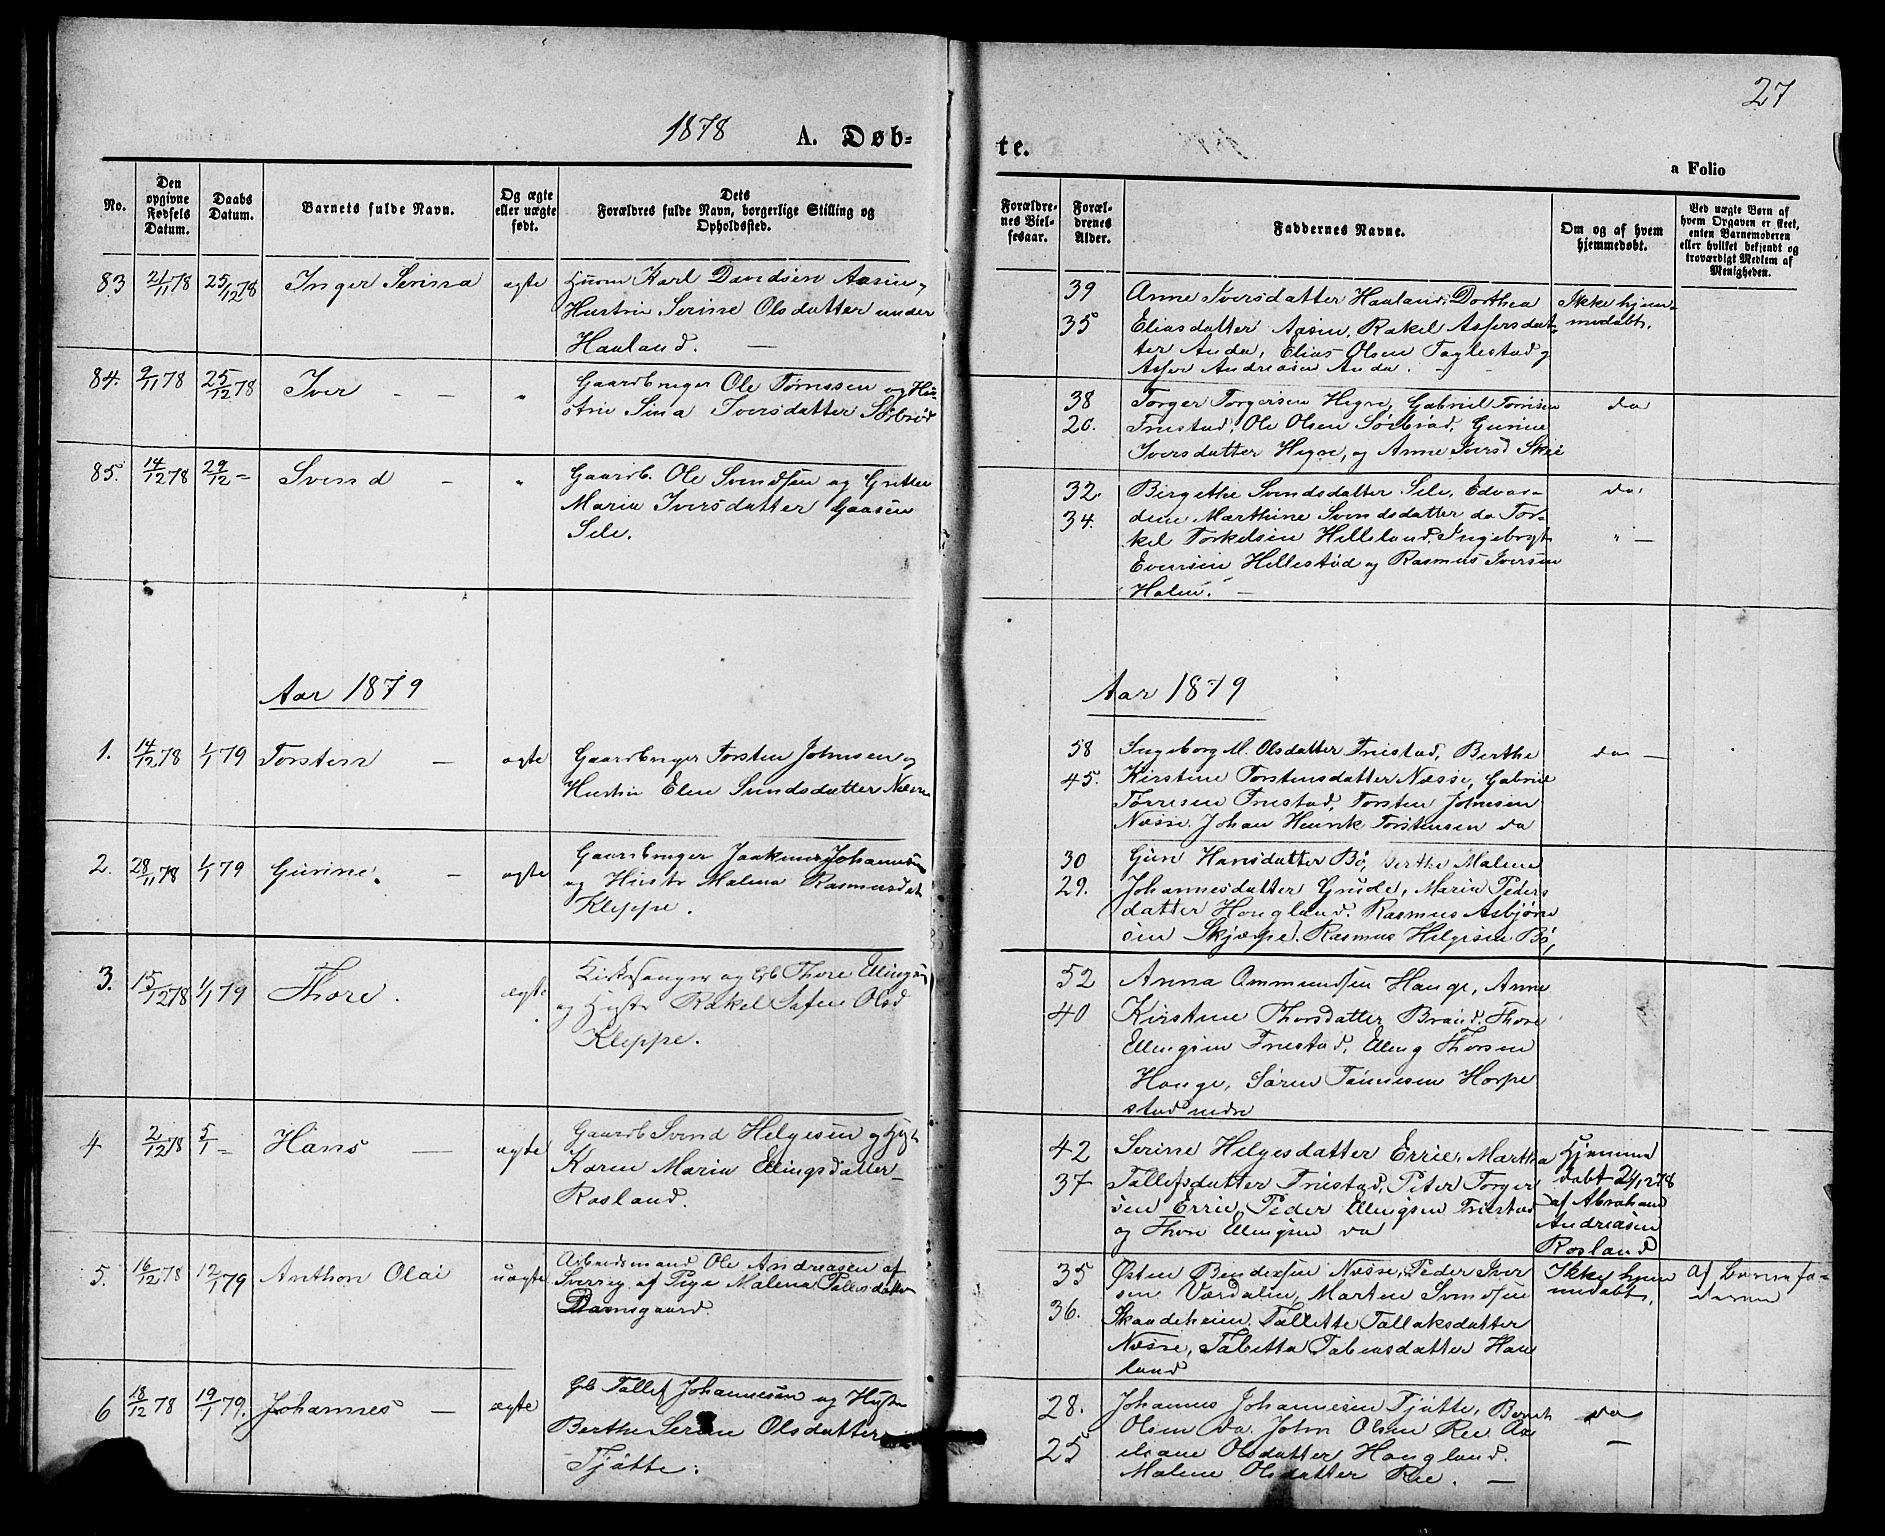 27
1878 A. Døb-
te.
a Folio
No.
Den opgivne Fødsels Datum.
Daabs Datum.
Barnets fulde Navn.
Og ægte eller uægte født.
Dets
Forældres fulde Navn, borgerlige Stilling og
Opholdssted.
Forældre-
nes Viel-
sesaar.
Foræl-
drenes
Alder.
Faddernes Navne.
Om og af hvem
hjemmedøbt.
Ved uægte Børn af
hvem Opgaven er skeet,
enten Barnemoderen
eller hvilket bekjendt og
troværdigt Medlem af
Menigheden.
83 21/11 78 25/12 78 Inger Serina ægte Huusm Karl Davidsen Aasen og
Hustru Serine Olsdatter under
Haaland. —
39
35
Anne Iversdatter Haaland, Dorthea
Eliasdatter Aasen, Rakel Asfersdat-
ter Anda, Elias Olsen Taglestad og
Asfer Andreasen Anda.
Ikke hjem-
medøbt.
84. 9/11 78 25/12 78 Iver — — " Gaardbruger Ole Tørressen og Hu-
stru Sina Iversdatter Sørbrød
38
20.
Torger Torgersen Hegre, Gabriel Tørresen
Friestad, Ole Olsen Sørbrød, Gurine
Iversdatter Hegre, og Anne Iversd Skeie
do
85. 14/12 78 29/12 = Svend — " Gaardb. Ole Svendsen og Grethe
Maria Iversdatter Gaasen
Sele.
32.
34.
Birgethe Svendsdatter Sele, Edvar-
dine Marthine Svendsdatter do Tor-
kel Torkelsen Helleland, Ingeborgt
Evensen Hellestød og Rasmus Iversen
Halen. —
do.
" —
Aar 1879
Aar 1879
1. 14/12 78 1/1 79 Torsten — ægte Gaardbruger Torsten Johnsen og
Hustru Elen Svendsdatter Næsse
58
45.
Ingeborg M. Olsdatter Friestad, Berthe
Kirstine Torstensdatter Næsse, Gabriel
Tørresen Friestad, Torsten Johnsen
Næsse, Johan Henrik Torstensen do
do —
2. 28/11 78 1/1 79 Gurine. — ægte Gaardbruger Joakim Johannesen
og Hustr Malena Rasmusdat
Kleppe.
30
29.
Guri Hansdatter Bø, Berthe Malene
Johannesdatter Grude, Maria Peders
datter Hongland, Rasmus Asbjørn
sen Skjæpe, Rasmus Helgesen Bø,
3. 15/12 78 1/1 79 Thore. ægte Kirkesanger og Gb Thore Ellingsen
og Hustr Rakel Olsd
Kleppe.
52
40
Anna Ommundsen Hauge, Anne
Kirstine Thorsdatter Braud, Thore
Ellingsen Friestad, Elling Thorsen
Hauge, Søren Tønnesen Horpe
stad nedre
4 2/12 78 5/1 = Hans — ægte Gaardb Svend Helgesen og Hst
Karen Maria Ellingsdatter
Rosland.
42
37
Serine Helgesdatter Erric, Martha
Tollefsdatter Friestad, Peter Torger
sen Erric, Peder Ellingsen Friestad
og Thore Ellingsen do
Hjemme
døbt 2/12 78
af Abraham
Andreasen
Rosland
5. 16/12 78 12/1 79 Anthon Olai uægte Arbeidsmand Ole Andreasen af
Sverrig af Pige Malena Tollevsdatter
Damsgaard
35
36.
Østen Bendixsen Næsse, Peder Iver
sen Værdalen, Marten Svendsen
Skaadeheien, Tallette Tallaksdatter
Næsse, Tabetta Tobiasdatter Haa
land
Ikke hjem
medøbt.
Af Barnefa-
deren
6 18/12 78 19/1 79. Johannes — ægte Gb Tollef Johannesen og Hustr
Berthe Serine Olsdatter
Tjøtte.
28.
25
Johannes Johannesen Tjøtte, Bernt
Olsen do. John Olsen Ree, Ax
eliane Olsdatter Hongland.
Malene Olsdatter Ree. —
do
—